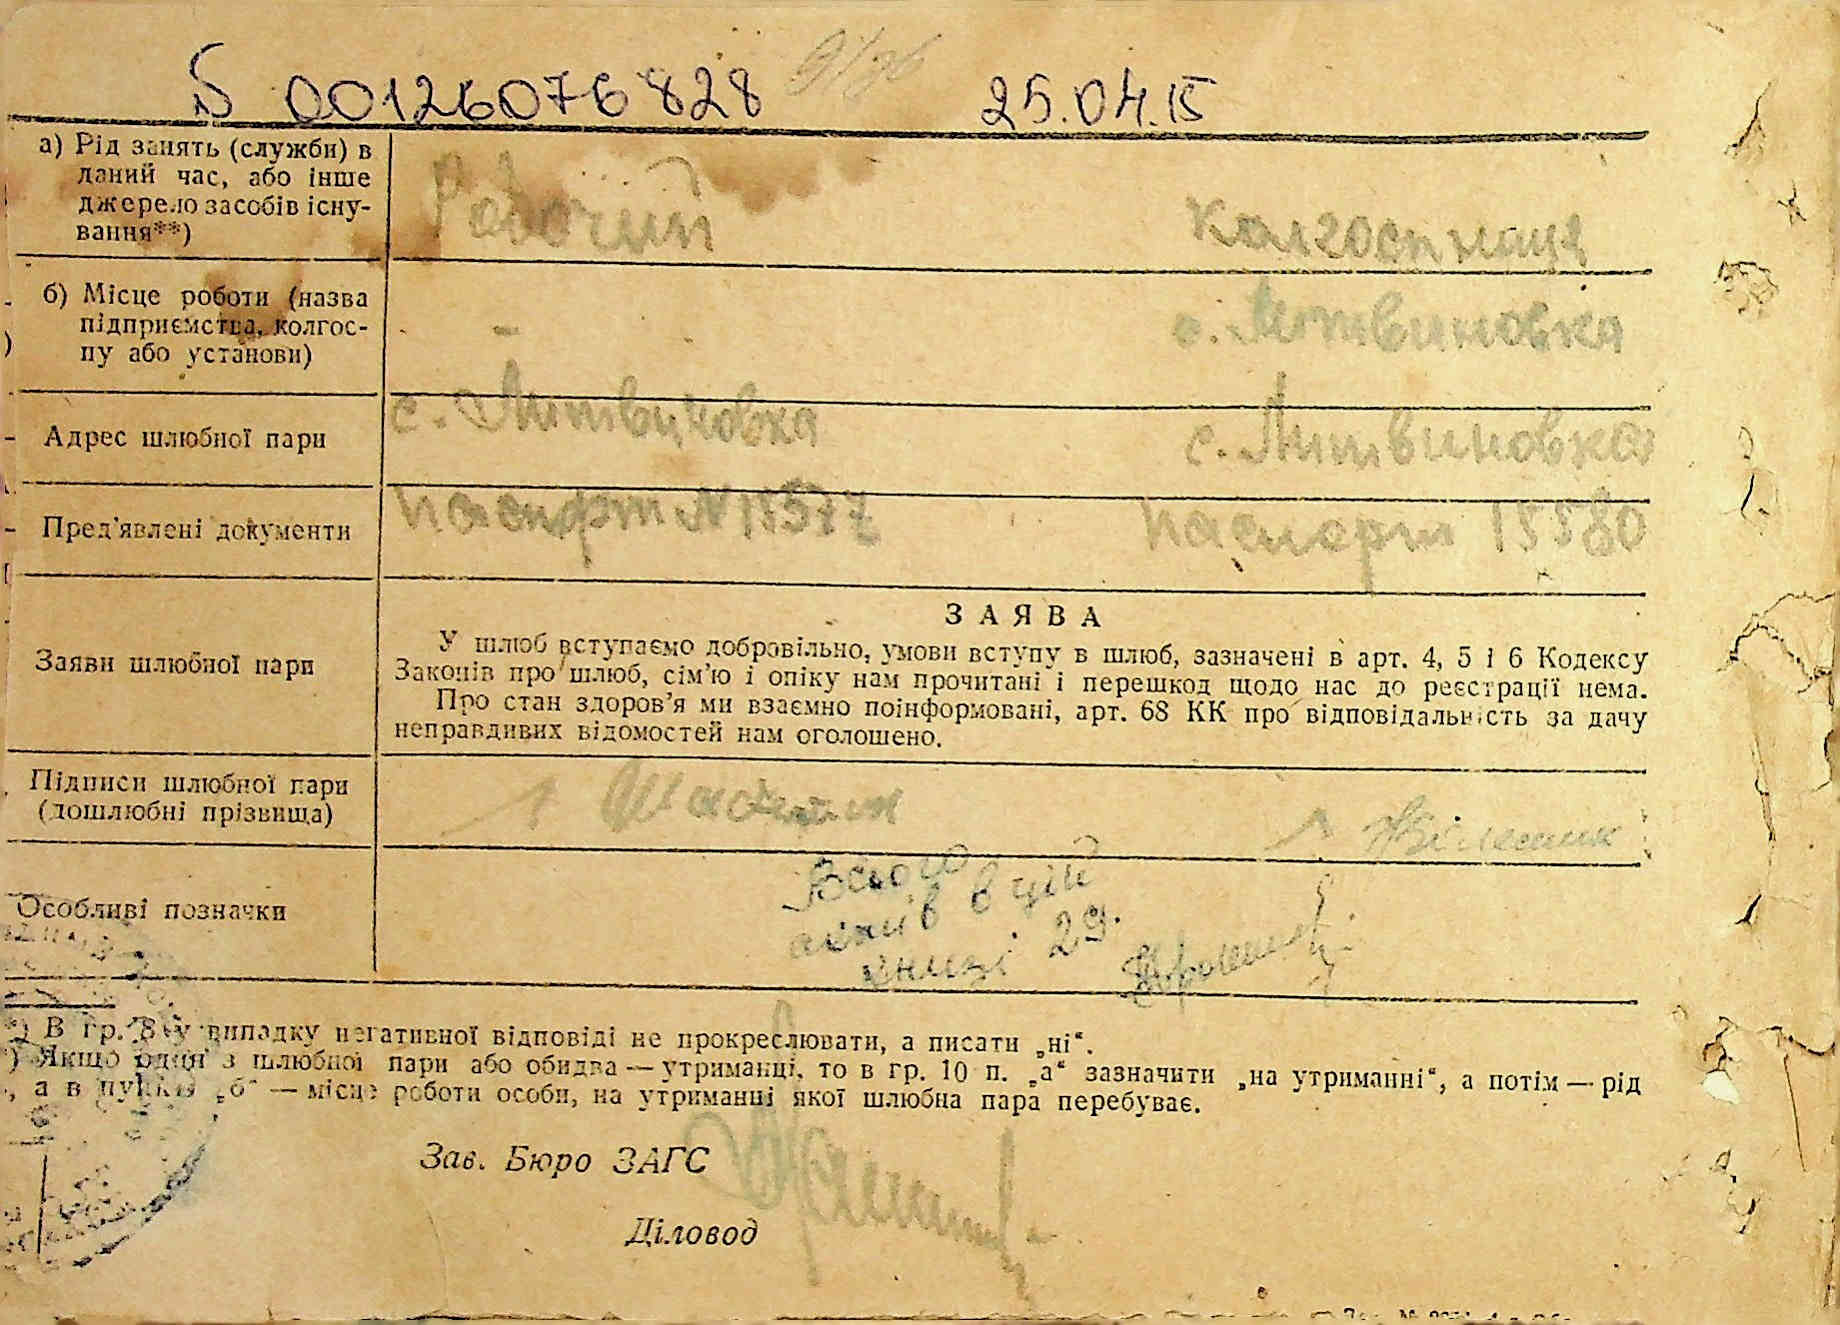 00126076828 25.04.15
а) Рід занять (служби) в
даний час, або інше
джерело засобів існу-
вання**)
Рабочий Калгоспниця
б) Місце роботи (назва
підприємства, колгос-
пу або установи)
- с. Литвиновка
Адрес шлюбної пари
с. Литвиновка с. Литвиновка
Пред'явлені документи
Паспорт № 15577 Паспорт 15580
Заяви шлюбної пари
ЗАЯВА
У шлюб вступаємо добровільно, умови вступу в шлюб, зазначені в арт. 4, 5 і 6 Кодексу
Законів про шлюб, сім'ю і опіку нам прочитані і перешкод щодо нас до реєстрації нема.
Про стан здоров'я ми взаємно поінформовані, арт. 68 КК про відповідальність за дачу
неправдивих відомостей нам оголошено.
Підписи шлюбної пари
(дошлюбні прізвища)
1 1
Особливі позначки
Всього
актів в цій
книзі 29.
*) В гр. 8 у випадку негативної відповіді не прокреслювати, а писати „ні“.
) Якщо один з шлюбної пари або обидва — утриманці, то в гр. 10 п. „а“ зазначити „на утриманні“, а потім — рід
, а в пункті „б“ — місце роботи особи, на утриманні якої шлюбна пара перебуває.
Зав. Бюро ЗАГС
Діловод